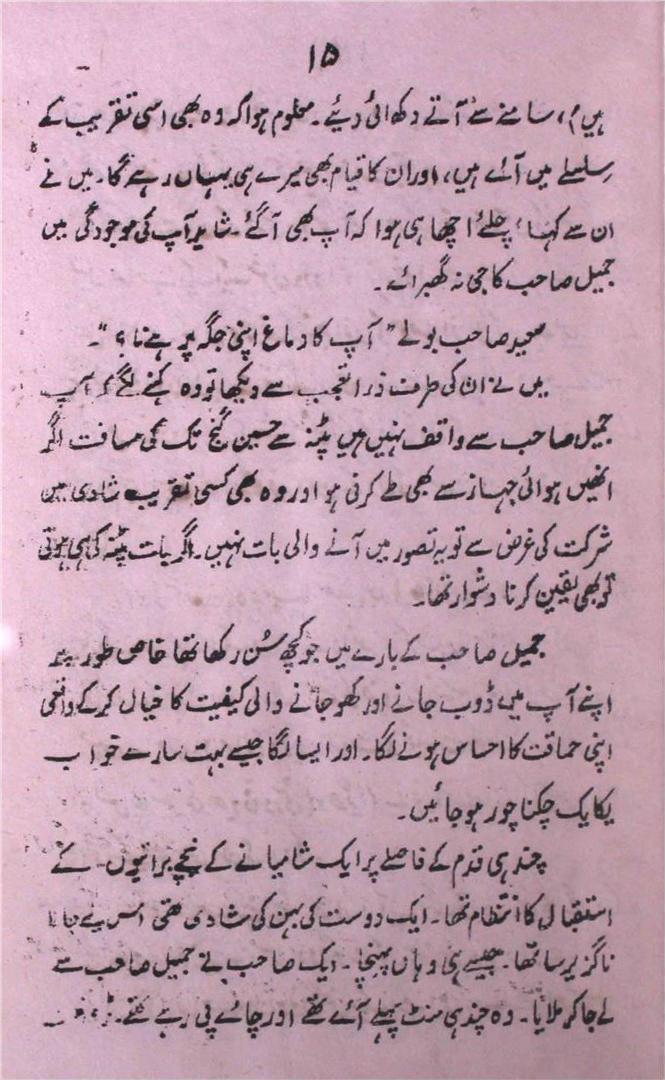 ۱۵
ہیں)، سامنے سے آتے دکھائی دیئے۔ معلوم ہوا کہ وہ بھی اسی تقریب کے
سلسلے میں آئے ہیں، اور ان کا قیام بھی میرے ہی یہاں رہے گا۔ میں نے
ان سے کہا، چلئے اچھا ہی ہوا کہ آپ بھی آگئے۔ شاید آپ کی موجودگی میں
جمیل صاحب کا جی نہ گھبرائے۔
صاحب بولے "آپ کا دماغ اپنی جگہ پر ہے نا؟"۔
میں نے ان کی طرف ذرا تعجب سے دیکھا تو وہ کہنے لگے کہ آپ
جمیل صاحب سے واقف نہیں ہیں پٹنہ سے حسین گنج تک کی مسافت اگر
انھیں ہوائی جہاز سے بھی طے کرنی ہو اور وہ بھی کسی تقریب شادی میں
شرکت کی غرض سے تو یہ تصور میں آنے والی بات نہیں۔ اگر بات پٹنہ کی ہی ہوتی
تو بھی یقین کرنا دشوار تھا۔
جمیل صاحب کے بارے میں جو کچھ سُن رکھا تھا خاص طور پر
اپنے آپ میں ڈوب جانے اور کھو جانے والی کیفیت کا خیال کرکے واقعی
اپنی حماقت کا احساس ہونے لگا۔ اور ایسا لگا جیسے بہت سارے خواب
یکایک چکنا چور ہو جائیں۔
چند ہی قدم کے فاصلے پر ایک شامیانے کے نیچے براتیوں کے
استقبال کا انتظام تھا۔ ایک دوست کی بہن کی شادی تھی اس لئے جانا
ناگزیر سا تھا۔ جیسے ہی وہاں پہنچا۔ ایک صاحب نے جمیل صاحب سے
لے جا کر ملایا۔ وہ چند ہی منٹ پہلے آئے تھے اور چائے پی رہے تھے۔